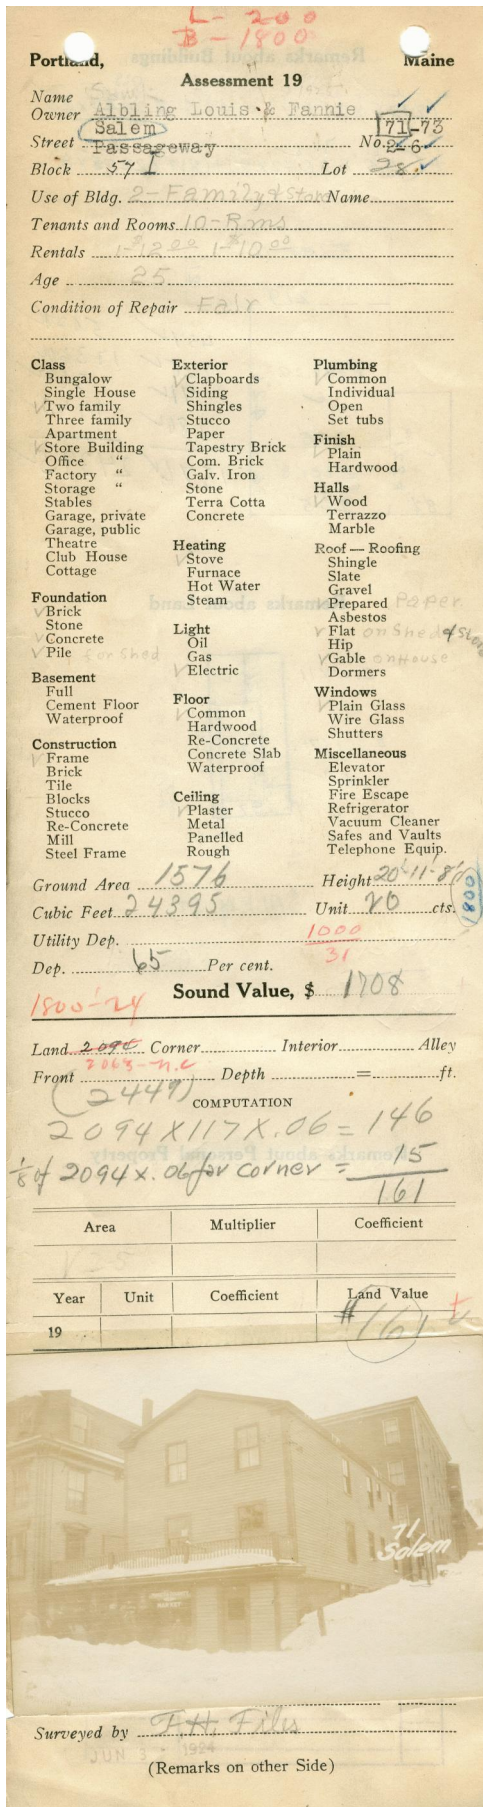 L - 200
B - 1800
Portland, Maine
Assessment 19
Name
Owner Albling Louis & Fannie
Salem 71-73
Street Passageway No. 2-6
Block 57 I Lot 28
Use of Bldg. 2-Family & Store Name
Tenants and Rooms 10-Rms
Rentals 1-$12.00 1-$10.00
Age 25
Condition of Repair Fair
Class
Bungalow
Single House
✓ Two family
Three family
Apartment
✓ Store Building
Office "
Factory "
Storage "
Stables
Garage, private
Garage, public
Theatre
Club House
Cottage
Foundation
✓ Brick
Stone
✓ Concrete
✓ Pile for Shed
Basement
Full
Cement Floor
Waterproof
Construction
✓ Frame
Brick
Tile
Blocks
Stucco
Re-Concrete
Mill
Steel Frame
Exterior
✓ Clapboards
Siding
Shingles
Stucco
Paper
Tapestry Brick
Com. Brick
Galv. Iron
Stone
Terra Cotta
Concrete
Heating
✓ Stove
Furnace
Hot Water
Steam
Light
Oil
Gas
✓ Electric
Floor
✓ Common
Hardwood
Re-Concrete
Concrete Slab
Waterproof
Ceiling
✓ Plaster
Metal
Panelled
Rough
Plumbing
✓ Common
Individual
Open
Set tubs
Finish
✓ Plain
Hardwood
Halls
✓ Wood
Terrazzo
Marble
Roof — Roofing
Shingle
Slate
Gravel
✓ Prepared Paper
Asbestos
✓ Flat on Shed & Store
Hip
✓ Gable on House
Dormers
Windows
✓ Plain Glass
Wire Glass
Shutters
Miscellaneous
Elevator
Sprinkler
Fire Escape
Refrigerator
Vacuum Cleaner
Safes and Vaults
Telephone Equip.
Ground Area 1576 Height 20'-11'-8'
Cubic Feet 24395 Unit 20 cts. 1800
Utility Dep. 1000
31
Dep. 65 Per cent.
Sound Value, $ 1708
1800-24
Land 2094 Corner Interior Alley
2063-n.c
Front Depth = ft.
(2447)
COMPUTATION
2094 X 117 X .06 = 146
1/8 of 2094 x .06 for corner = 15
161
Area Multiplier Coefficient
Year Unit Coefficient Land Value
19 $161
MARKET
71
Salem
Surveyed by F.H. Files
JUN 3 1924
(Remarks on other Side)